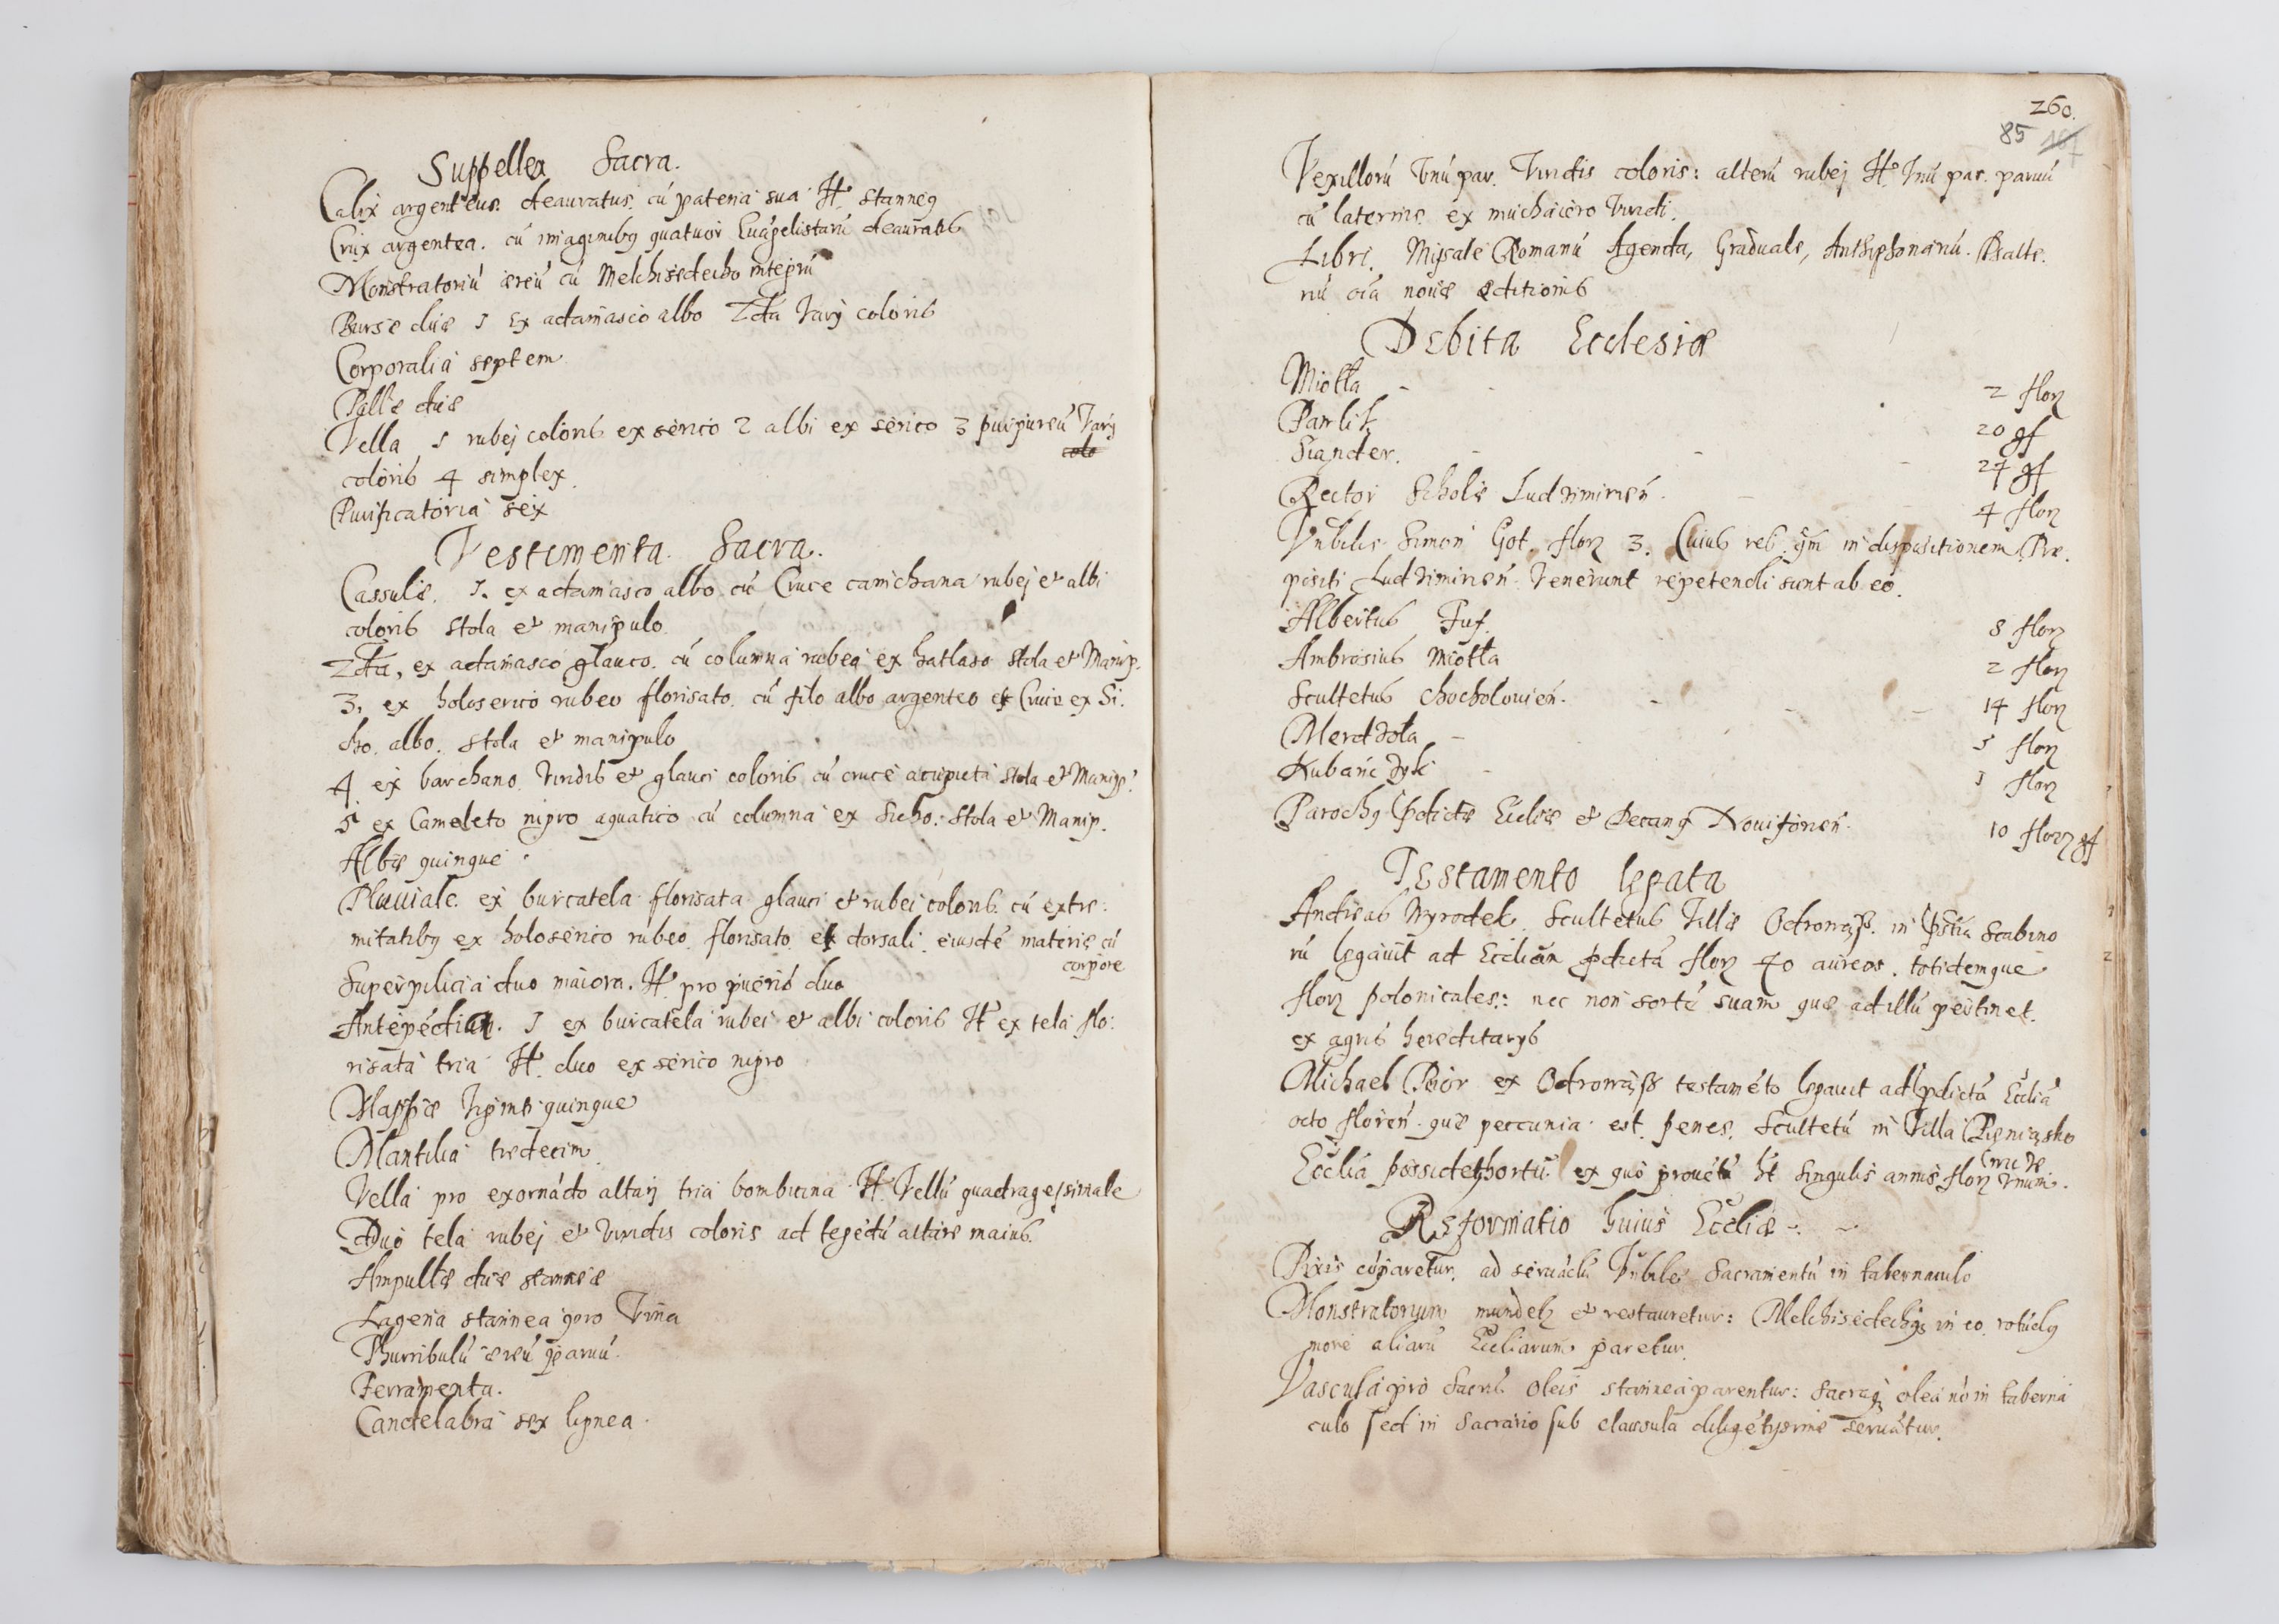 Suppellex Sacra.
Calix argenteus. deauratus. cú patena sua Itē. stanneꝯ
Crux argentea. cú imaginibꝯ quatuor Euágelistarú deauratis
Monstratoriú æreú cú Melchisedecho integrú
Bursæ duæ 1 ex adamasco albo 2da varij coloris
Corporalia septem
Pallæ duæ
Vella 1 rubej coloris ex serico 2 albi ex serico 3 purpureú varij
colo
coloris 4 simplex.
Purificatoria sex
Vestimenta Sacra.
Cassulæ. 1. ex adamasco albo cú Cruce camchana rubej et albi
coloris stola et manipulo.
2da, ex adamasco glauco. cú columna rubea ex hatlaso stola et Manip.
3. ex holoserico rubeo florisato. cú filo albo argenteo et Cruce ex Si.
cho. albo. stola et manipulo
4 ex barchano viridis et glauci coloris cú cruce acupicta stola et Manip.
5 ex Cameleto nigro aquatico cú columna ex sicho. stola et Manip.
Albæ quinque
Pluuiale ex burcatela florisata glauci et rubei coloris. cú extre:
mitatibꝯ ex holoserico rubeo florisato. et dorsali. eiusdé materiæ cú
corpore
Superpilicia duo maiora. Itē. pro pueris duo
Antepédia. 1 ex burcatela rubei et albi coloris Itē ex tela flo:
risata tria Itē. duo ex serico nigro
Mappæ viginti quinque
Mantilia tredecim
Vella pro exornádo altarj tria bombicina Itē. Vellú quadragessimale
Duo tela rubej et viridis coloris ad tegédú altare maius.
Ampullæ duæ stanneæ
Lagena stannea pro vina
Thurribulú æreú paruú.
Ferramenta.
Candelabra sex lignea.
260.
85
Vexillorú vnú par. viridis coloris: alterú rubej Itē. vnú par. paruú
cú laternis ex muchaiero viridi.
Libri. Missale Romanú Agenda, Graduale, Anthiphonariú. Psalte.
riú oīa nouæ æditionis
Debita Ecclesiæ
Miotła - - 2 flor
Pawlik 20 gſ
Siander. - - - 24 gſ
Rector Scholæ Ludzimirień. - 4 flor
Nobilis Simon Got. flor 3. Cuius res. in dispositionem Præ.
positi Ludzimirień. venerunt repetendi sunt ab eo.
Albertus Fuf. 8 flor
Ambrosius Miotła 2 flor
Scultetus Chocholouień. - - - 14 flor
Merdzoła - 5 flor
Kubańczyk - 1 flor
Parochꝯ pdictæ Ecliæ et Decanꝯ Nouiforień. 10 flor gſ
Testamento legata
Andreas Wyrodek Scultetus Villæ Odrowąsz. in pſtia Scabino
rú legauit ad Eccliam pdictá flor 40 aureos. totidemque
flor polonicales: nec non sorté suam quæ ad illú pertinet.
ex agris hereditarijs
Michael Bior ex Odrowąsz testaméto legauit ad pdictá Eccliá
octo floreń. quæ peccunia est penes. Scultetú in Villa Pieniąsko
wice
Ecclia possidet hortú ex quo prouétú ht singulis annis flor vnum.
Reformatio huius Eccliæ -. ~
Pixis cóparetur. ad seruádú Vnbile Sacramentú in tabernaculo
Monstratorium mundetꝫ et restauretur: Melchisedechꝯ in eo rotúdꝯ
more aliarú Eccliarum paretur.
Vascula pro Sacris oleis stannea parentur: sacraqꝫ olea nó in taberna
culo sed in Sacrario sub clausula diligétissime seruátur.